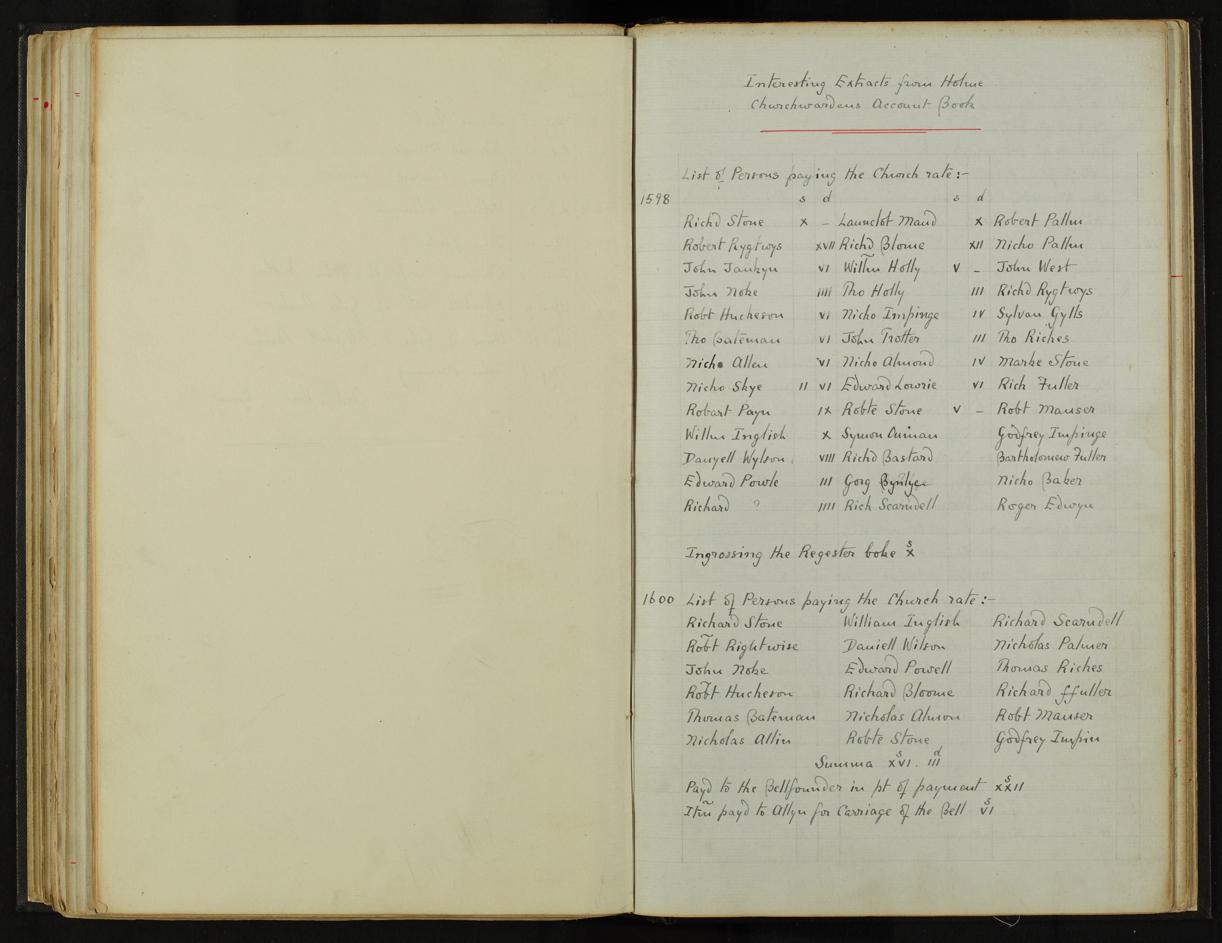 Interesting Extracts from Holme
Churchwardens Account Book
List of Persons paying the Church rate:-
1598 s d s d
Richd Stone x – Launclot Maud x Robert Pallm
Robert Rygtwys xvii Richd Blome xii Nicho Pallm
John Jankyn vi Willm Holly v – John West
John Noke iiii Tho Holly iii Richd Rygtwys
Robt Hucheson vi Nicho Impinge iv Sylvan Gylls
Tho Bateman vi John Trotter iii Tho Riches
Nicho Allen vi Nicho Almond iv Marke Stone
Nicho Skye ii vi Edward Lowrie vi Rich Fuller
Robart Payn ix Robte Stone v – Robt Mauser
Willm Inglish x Symon Godfrey Impinge
Danyell Wylson viii Richd Bastard Bartholomew Fuller
Edward Powle iii Gorg Nicho Baker
Richard ? iiii Rich Scarndell Roger Edwyn
Ingrossing the Regester boke x s
1600 List of Persons paying the Church rate:-
Richard Stone William Inglish Richard Scarndell
Robt Rightwise Daniell Wilson Nicholas Palmer
John Noke Edward Powell Thomas Riches
Robt Hucheson Richard Bloome Richard ffuller
Thomas Bateman Nicholas Almon Robt Mauser
Nicholas Allin Robte Stone Godfrey Impin
Summa xvi s . iii d
Payd to the Bellfounder in pt of payment xxii s
Itm payd to Allyn for Carriage of the Bell vi s